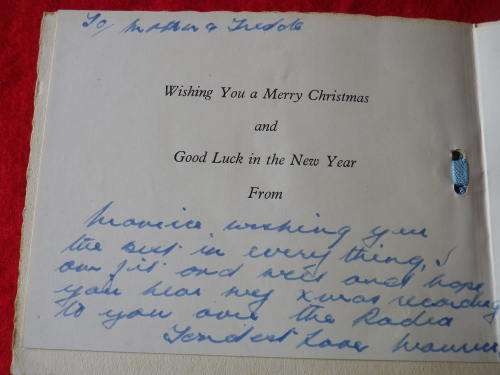 To/ Mother & Freddie
Wishing You a Merry Christmas
and
Good Luck in the New Year
From
Maurice, wishing you
the best in everything, I
am fit and well and hope
you hear my xmas recording
to you over the Radio
Tenderest Love Maurice